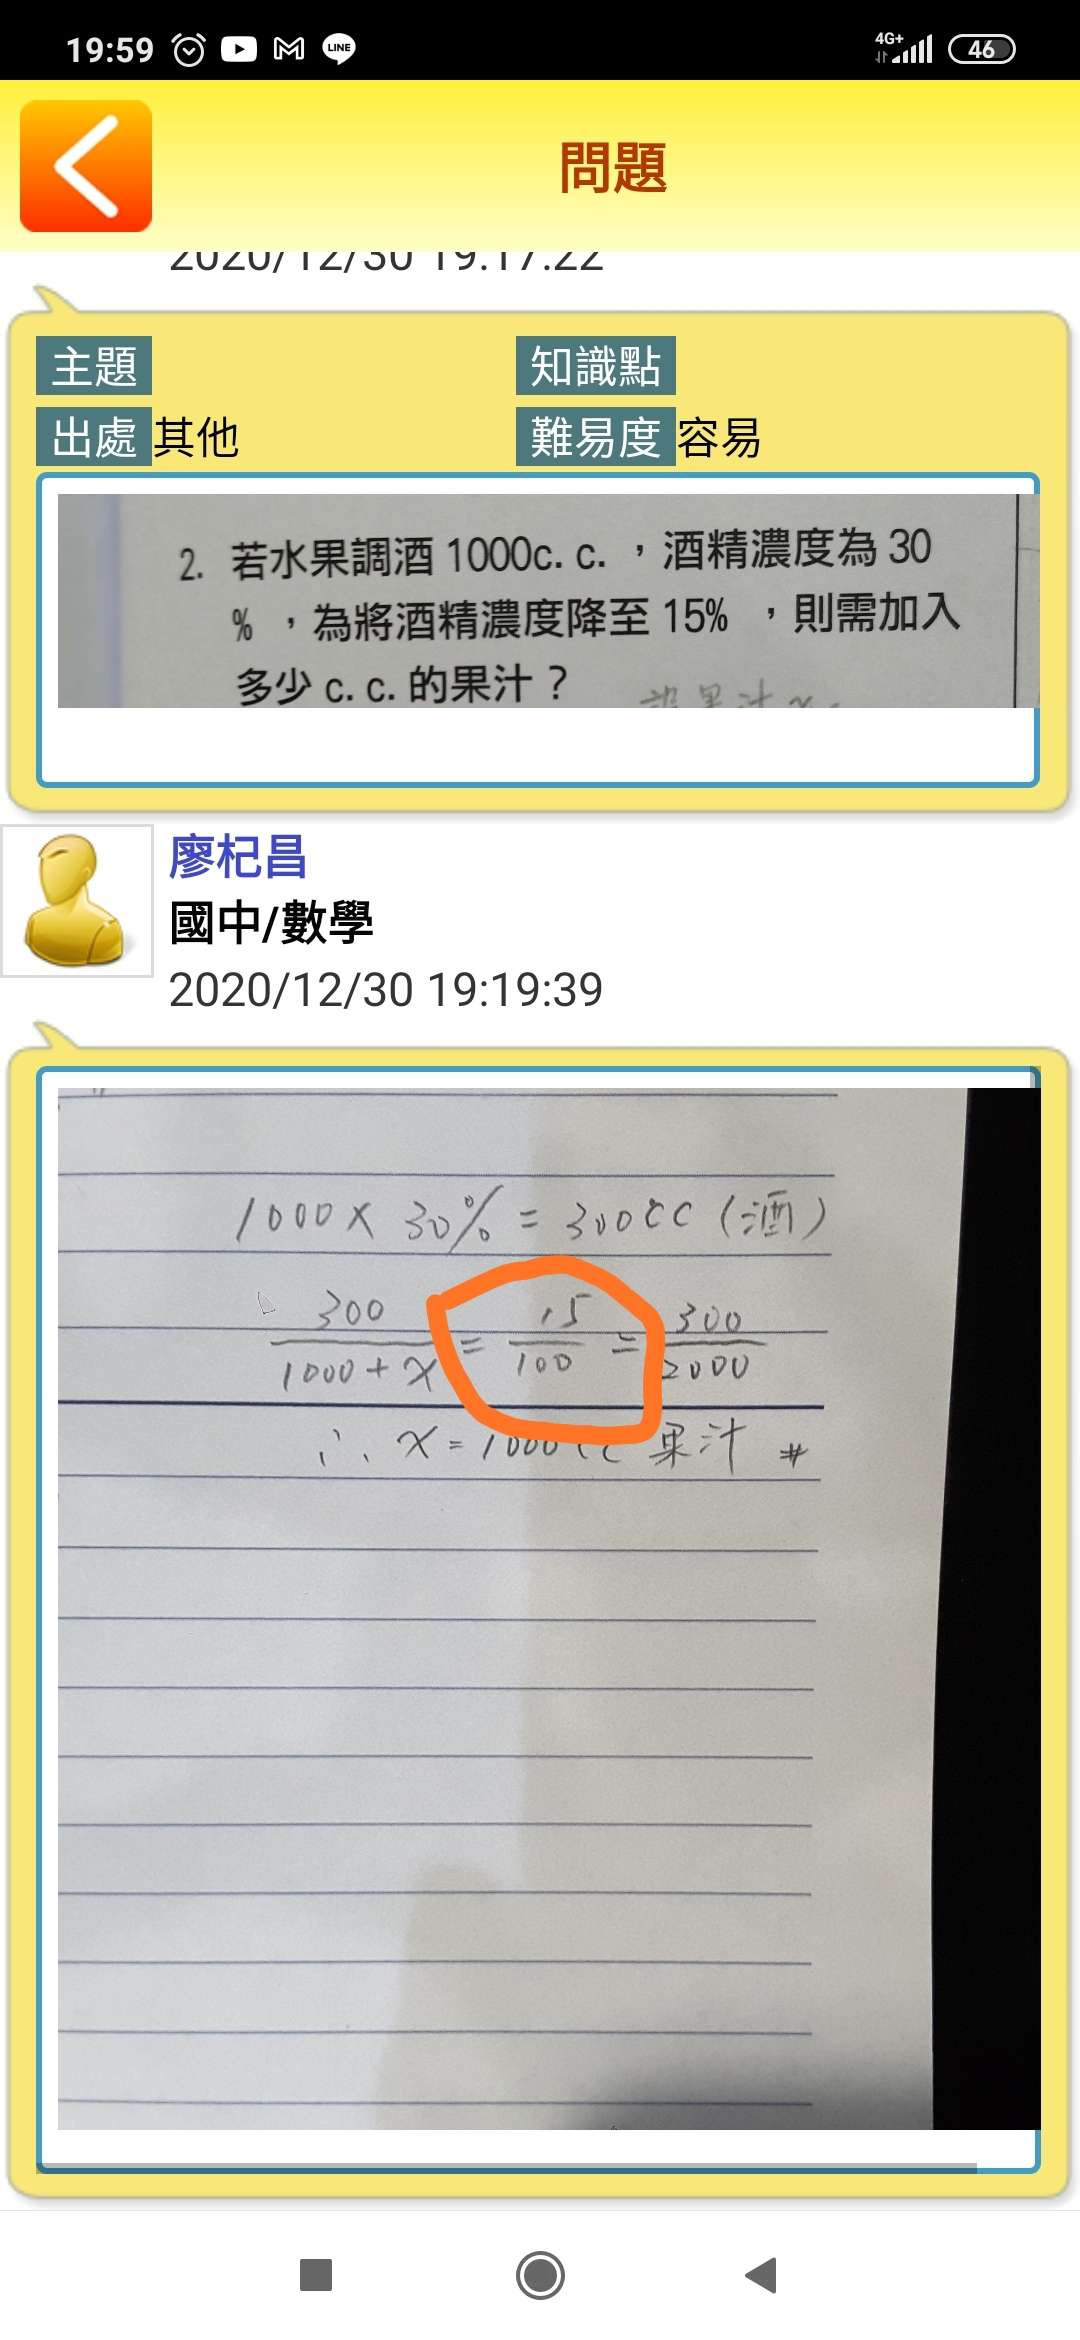 19:59 LINE 4G+ 46
問題
2020/12/30 19:17:22
主題 知識點
出處 其他 難易度 容易
2. 若水果調酒 1000c. c. ，酒精濃度為 30
% ，為將酒精濃度降至 15% ，則需加入
多少 c. c. 的果汁？
設果汁 x
廖杞昌
國中/數學
2020/12/30 19:19:39
1000 X 30% = 300cc (酒)
300/1000+x = 15/100 = 300/2000
∴ x = 1000cc 果汁 #